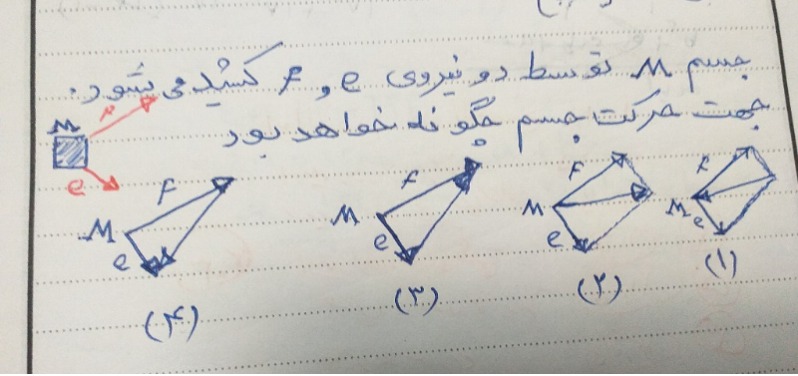 جسم M توسط دو نیروی e و F کشیده می شود.
جهت حرکت جسم چگونه خواهد بود
M
F
e
F
M
e
(۴)
F
M
e
(۳)
F
M
e
(۲)
F
M
e
(۱)